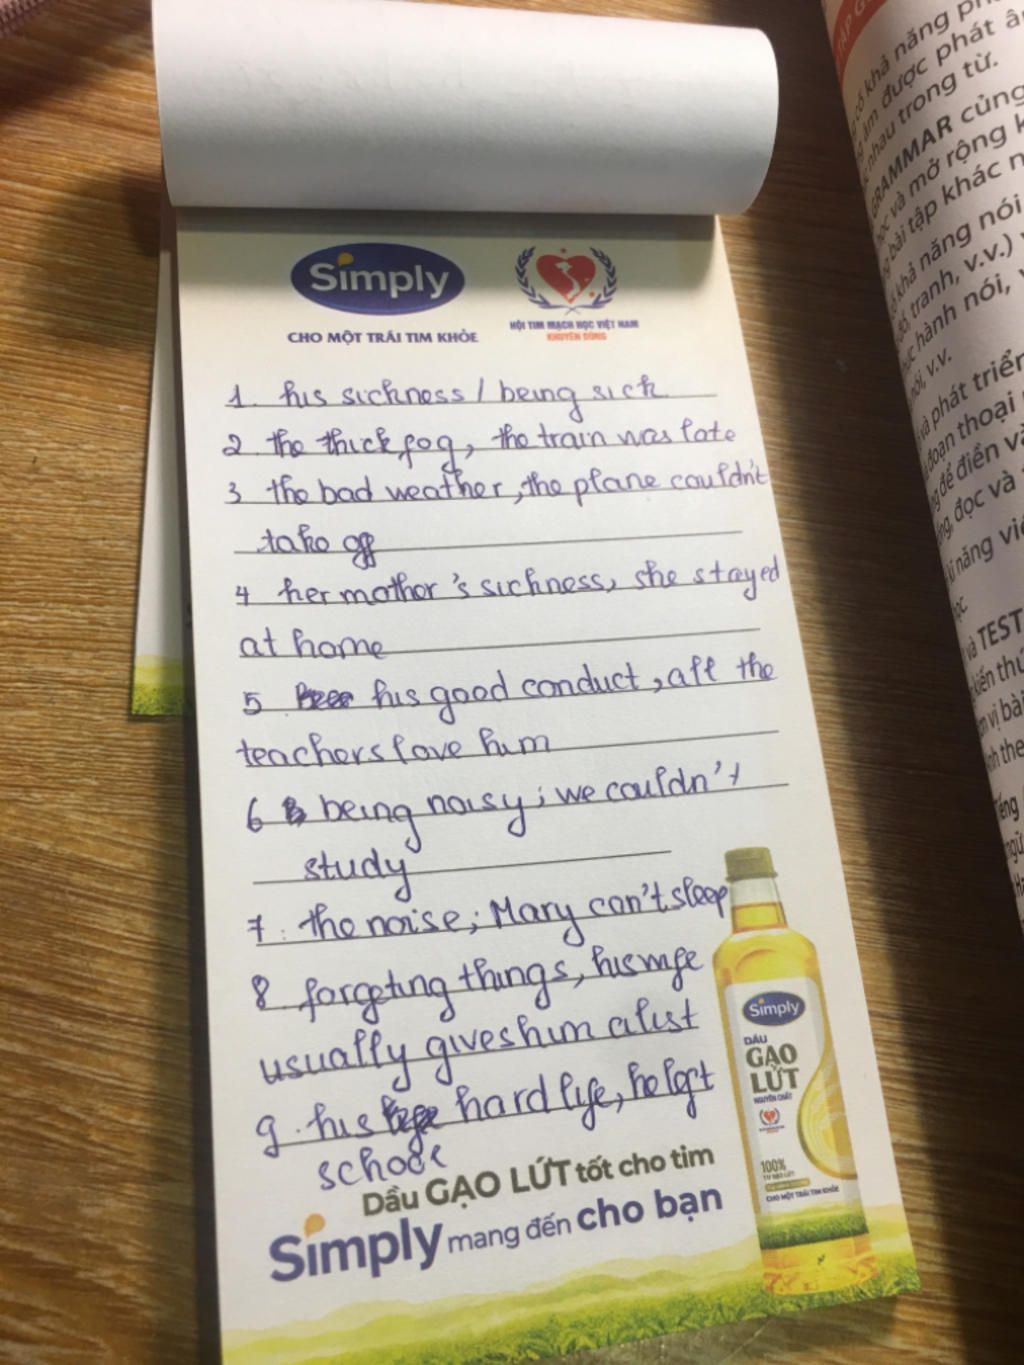 Simply
CHO MỘT TRÁI TIM KHỎE
HỘI TIM MẠCH HỌC VIỆT NAM
KHUYÊN DÙNG
1. his sickness / being sick
2 the thick fog, the train was late
3 the bad weather, the plane couldn't
take off
4 her mother's sickness, she stayed
at home
5 his good conduct, all the
teachers love him
6 being noisy; we couldn't
study
7. the noise; Mary can't sleep
8 forgeting things, his wife
usually gives him a list
9. his hard life, he left
school
Dầu GẠO LỨT tốt cho tim
Simply mang đến cho bạn
Simply
DẦU
GẠO
LỨT
NGUYÊN CHẤT
100%
TỪ GẠO LỨT
CHO MỘT TRÁI TIM KHỎE
TẬP G
có khả năng ph
được phát â
nhau trong từ.
GRAMMAR củng
học và mở rộng k
bài tập khác n
khả năng nói
tranh, v.v.)
hành nói, v
nói, v.v.
và phát triển
đoạn thoại
để điền và
đọc và
kĩ năng vi
học
và TEST
kiến thứ
vị bài